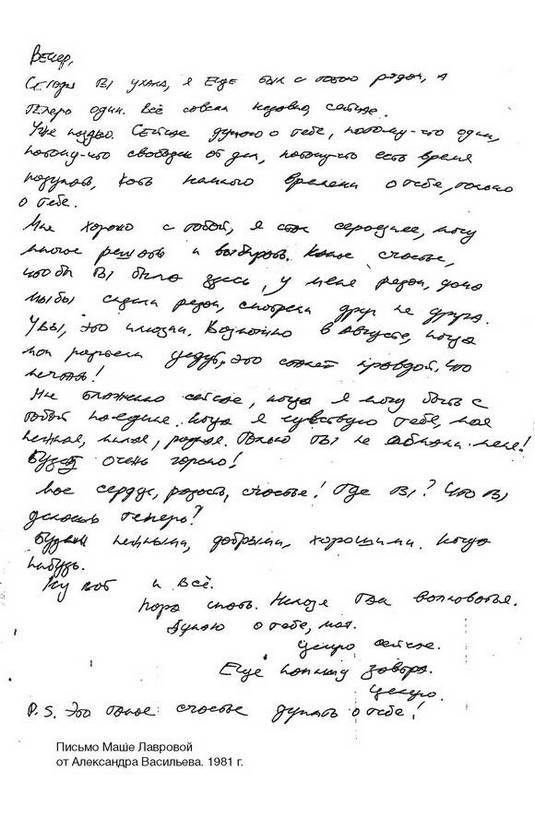 Вечер,
Сегодня ты ухала, я ещё был с тобою рядом, а
теперь один. Всё совсем недавно, сейчас.
Уже поздно. Сейчас думаю о тебе, потому-что один,
потому-что свободен от дел, потому-что есть время
подумать, хоть немного времени о тебе, только
о тебе.
Мне хорошо с тобой, я стал серьёзнее, могу
многое решать и выбирать. Какое счастье,
чтобы ты была здесь, у меня рядом, дома
мы бы сидели рядом, смотрели друг на друга.
Увы, это иллюзии. Возможно в Августе, когда
мои родители уедут, это станет правдой, что
мечта!
Не сейчас, когда я могу быть с
тобой наедине. Когда я чувствую тебя, моя
нежная, милая, родная. Только ты не обмани меня!
Будет очень горько!
Моё сердце, радость, счастье! Где ты? Что ты
делаешь теперь?
Будем нежными, добрыми, хорошими. Когда
нибудь.
Ну вот и всё.
Пора спать. Нельзя так волноваться.
Думаю о тебе, моя.
Целую сейчас.
Ещё напишу завтра.
Целую.
P.S. Это такое счастье думать о тебе!
Письмо Маше Лавровой
от Александра Васильева. 1981 г.